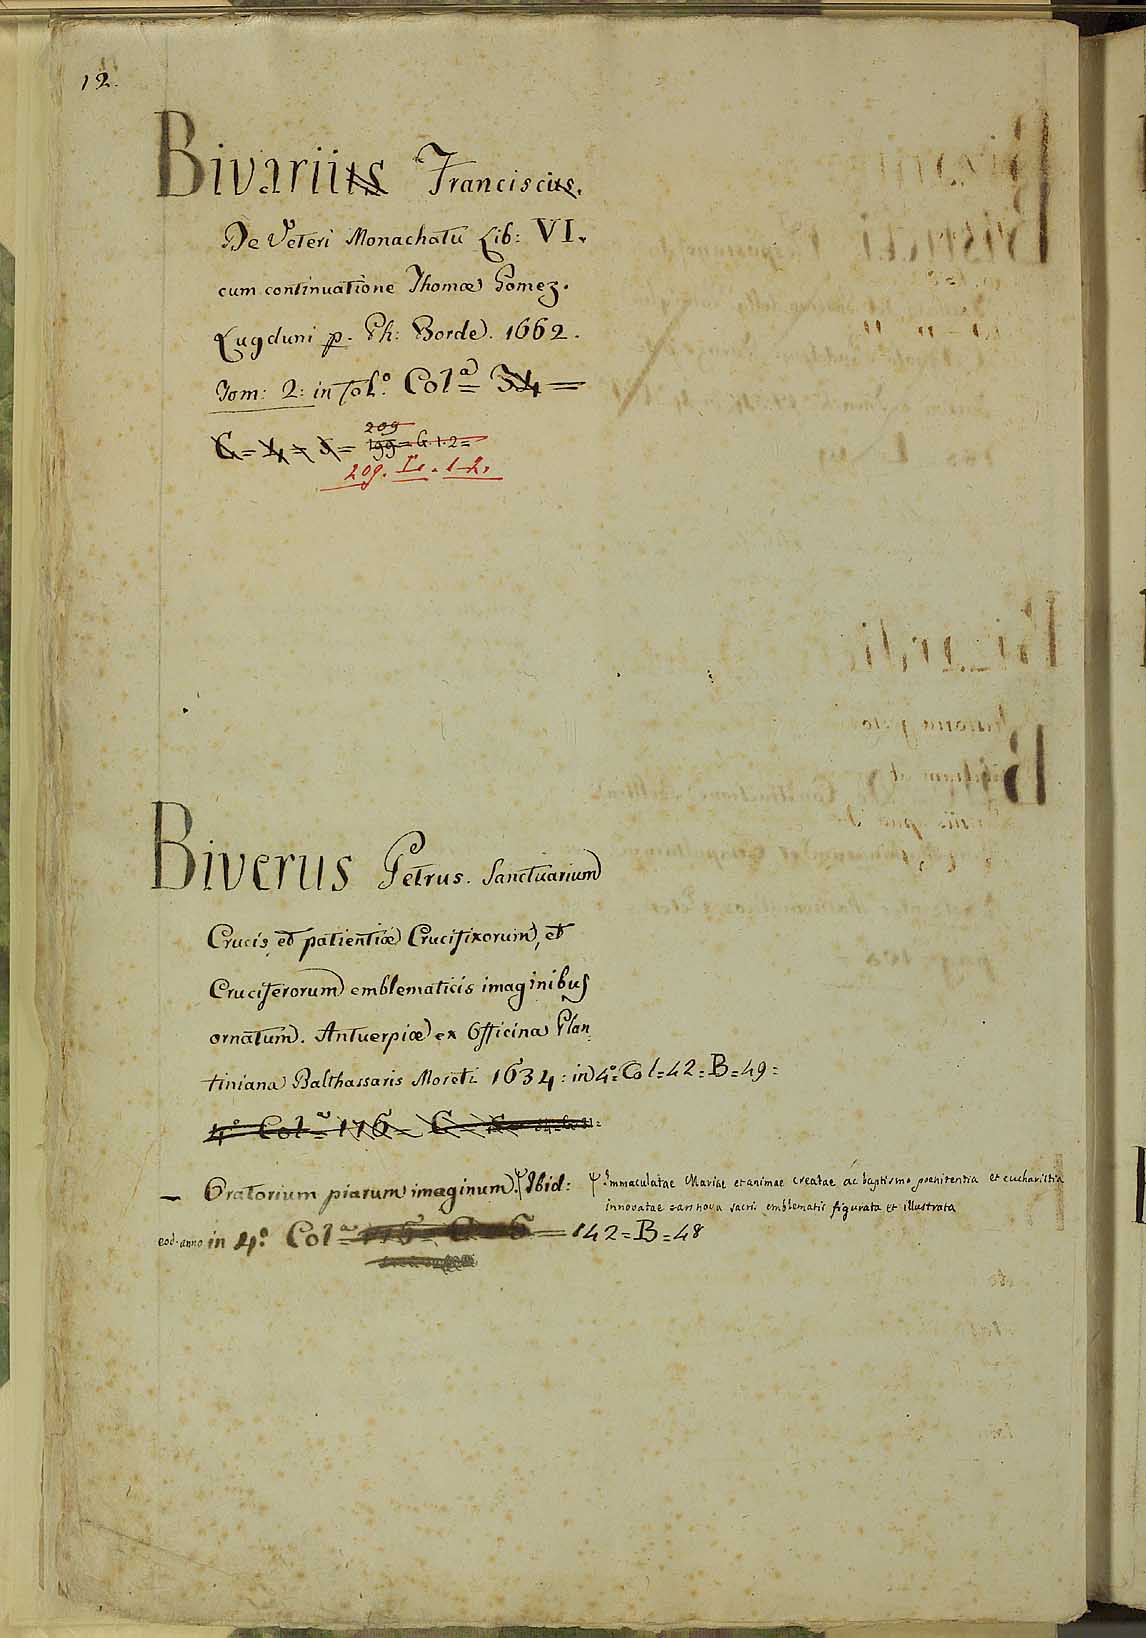 12.
Bivariius Franciscus.
De Veteri Monachatu Lib: VI.
cum continuatione Thomæ Gomez.
Lugduni p. Ph: Borde. 1662.
Tom: 2: in fol.º Col.ª 34 =
209
G = 4 = 5 = 199 = G. 1. 2 =
209. I. 1-2.
Biverus Petrus. Sanctuarium
Crucis, et patientiæ Crucifixorum, et
Cruciferorum emblematicis imaginibus
ornatum. Antuerpiæ ex Officina Plan
tiniana Balthassaris Moreti 1634: in 4º. Col = 42 = B = 49 =
4º Col.ª 176 =
— Oratorium piarum imaginum. Ψ Ibid: Ψ Immaculatae Mariae et animae creatae ac baptismo poenitentia et eucharistia
innovatae ars nova sacris emblematis figurata et illustrata
eod. anno in 4º. Col.ª = 142 = B = 48